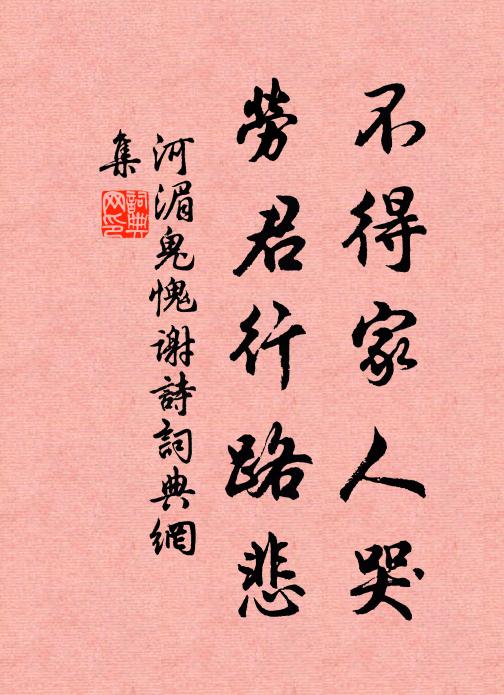 不得家人哭
勞君行路悲
河湄鬼愧谢詩詞典網
集
詞典
网印